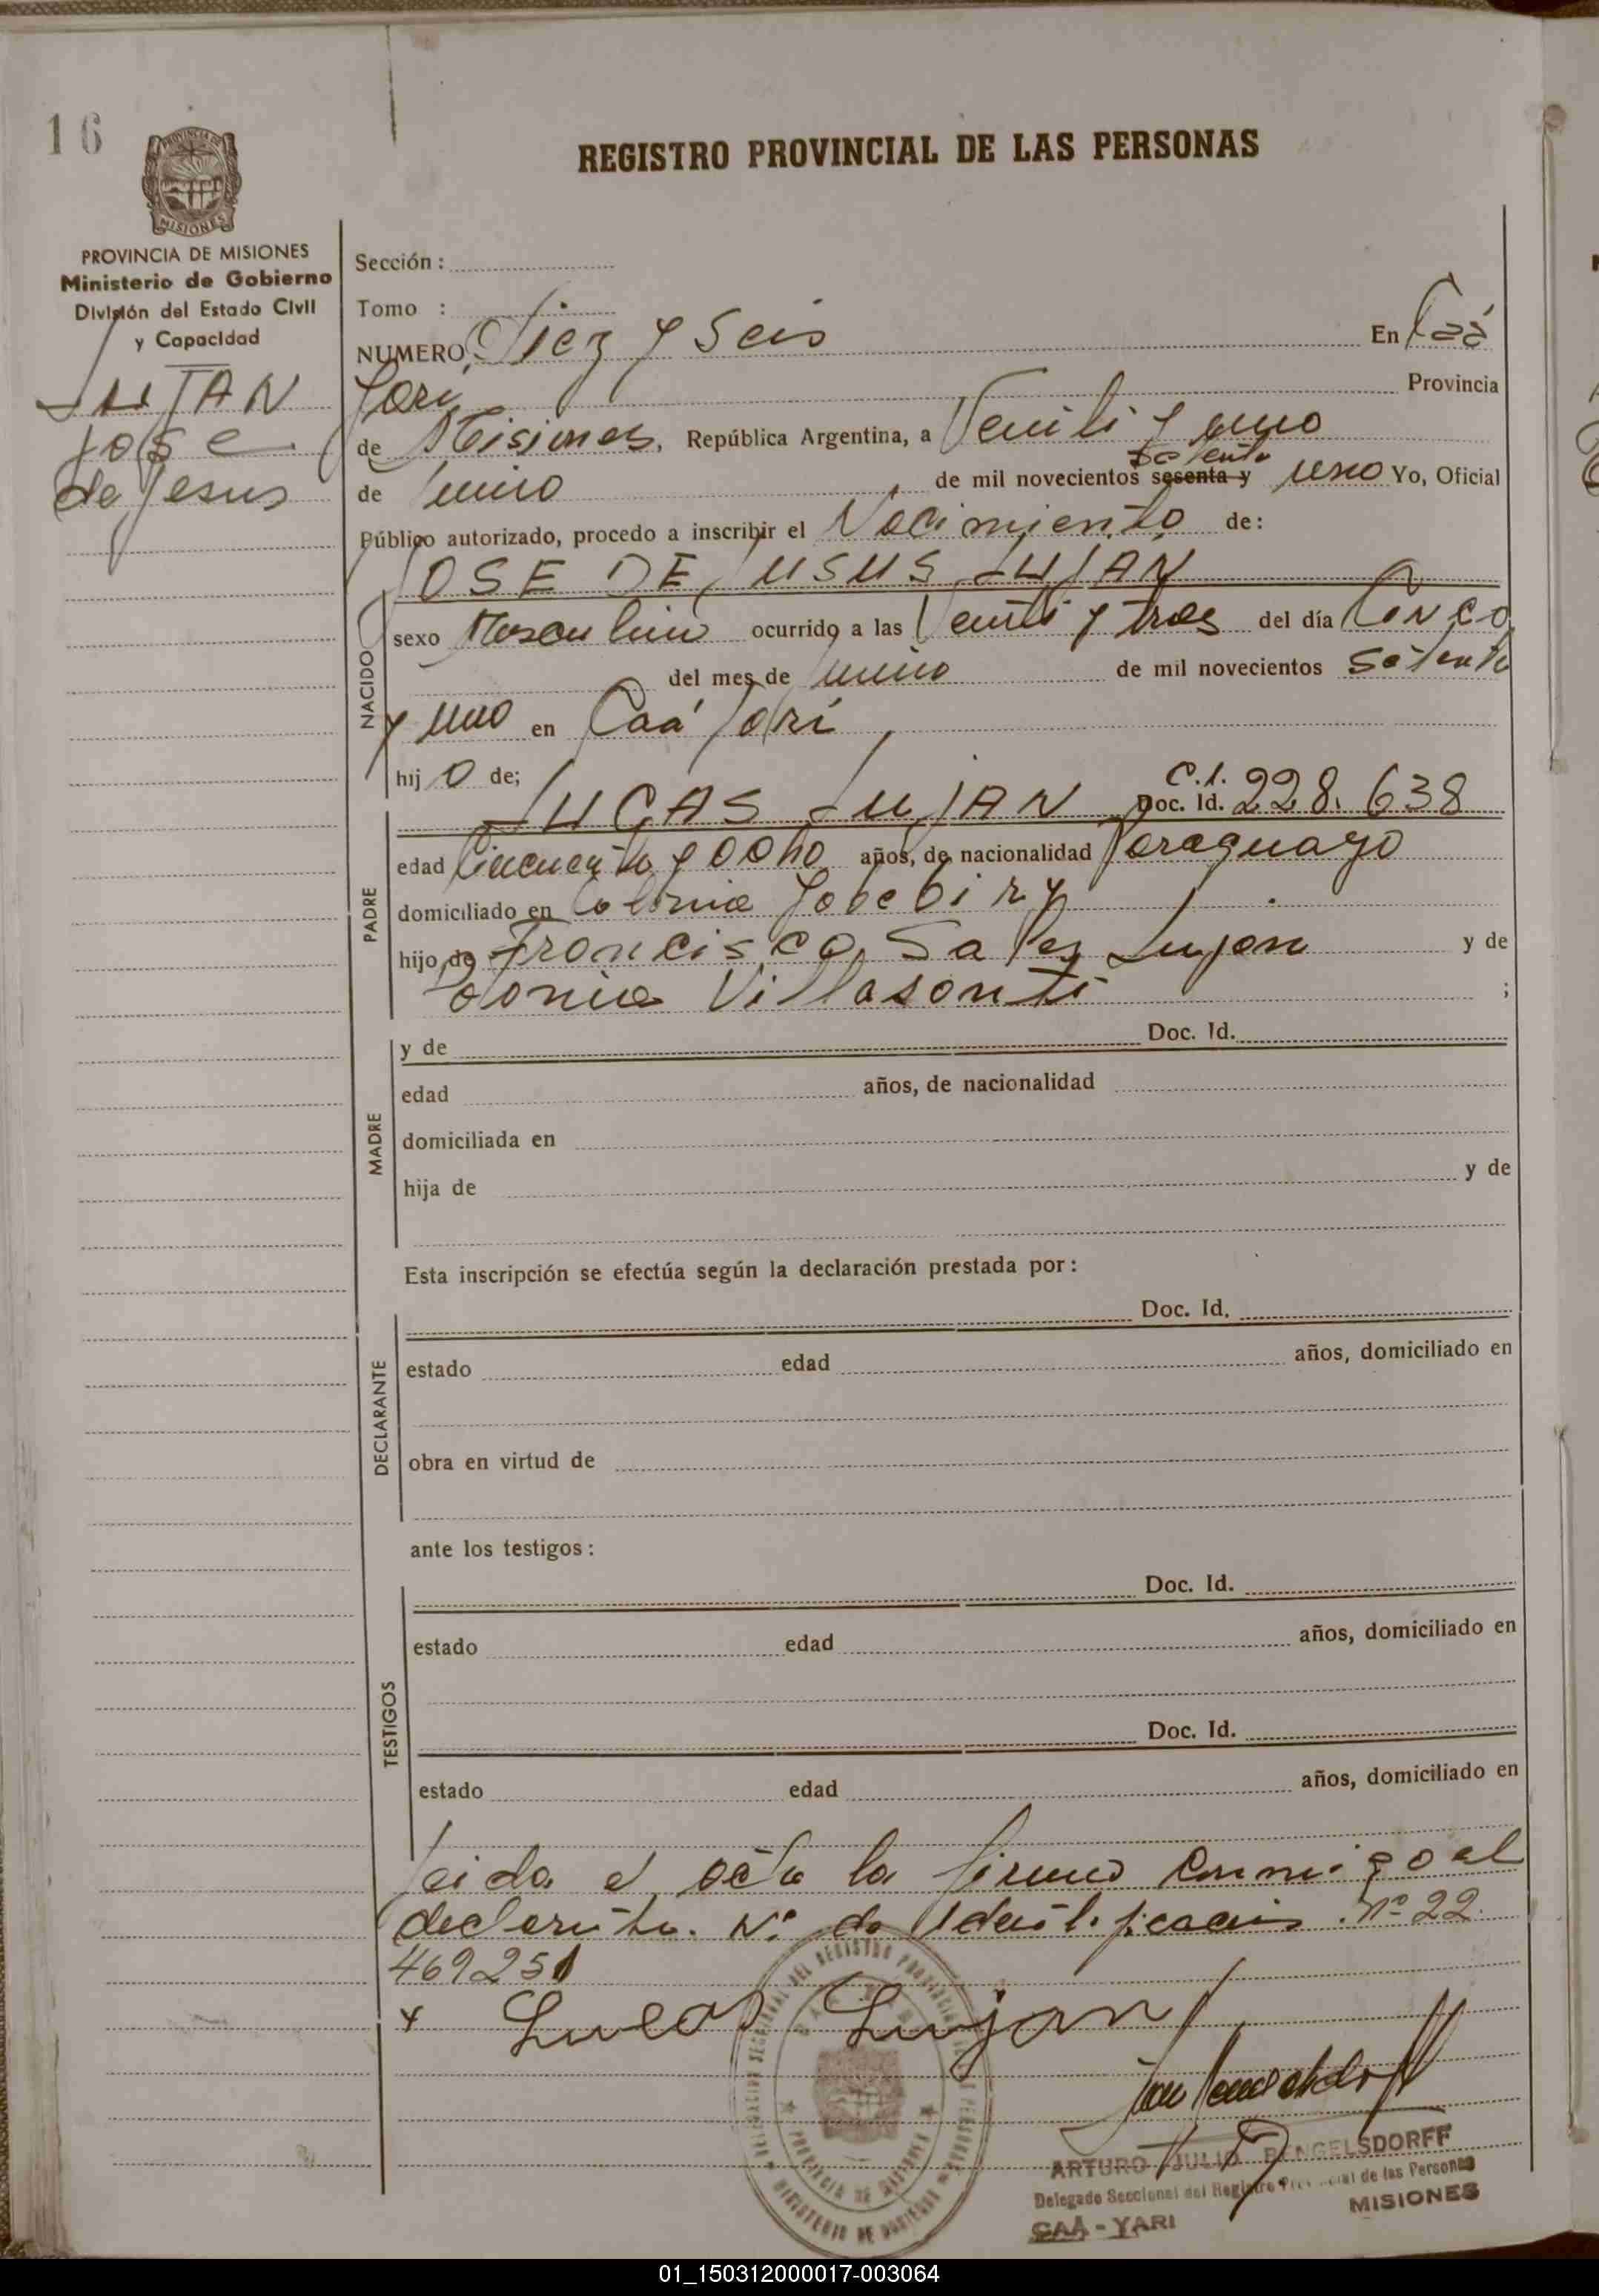 16
REGISTRO PROVINCIAL DE LAS PERSONAS
PROVINCIA DE
MISIONES
PROVINCIA DE MISIONES
Ministerio de Gobierno
División del Estado Civil
y Capacidad
LUJAN
José
de Jesus
Sección :
Tomo :
NUMERO Diez y Seis En Caá
Yarí Provincia
de Misiones, República Argentina, a Veinti y uno
setenta
de Junio de mil novecientos sesenta y uno Yo, Oficial
Público autorizado, procedo a inscribir el Nacimiento de:
JOSE DE JUSUS LUJAN
NACIDO
sexo Masculino ocurrido a las Veinti y tres del día Cinco
del mes de Junio de mil novecientos Setenta
y uno en Caá Yarí
hij o de;
C.I.
LUCAS LUJAN Doc. Id. 228.638
PADRE
edad Cincuenta y Ocho años, de nacionalidad Paraguayo
domiciliado en Colonia Yabebiry
hijo de Francisco Sales Lujan y de
Villasanti ;
MADRE
y de Doc. Id.
edad años, de nacionalidad
domiciliada en
hija de y de
Esta inscripción se efectúa según la declaración prestada por :
DECLARANTE
Doc. Id.
estado edad años, domiciliado en
obra en virtud de
ante los testigos :
TESTIGOS
Doc. Id.
estado edad años, domiciliado en
Doc. Id.
estado edad años, domiciliado en
Leida el acta la firma conmigo el
declarante. Nº de Identificación Nº 22
469251
x Lucas Lujan
ARTURO JULIO BENGELSDORFF
Delegado Seccional del Registro Provincial de las Personas
MISIONES
CAÁ - YARI
01_150312000017-003064